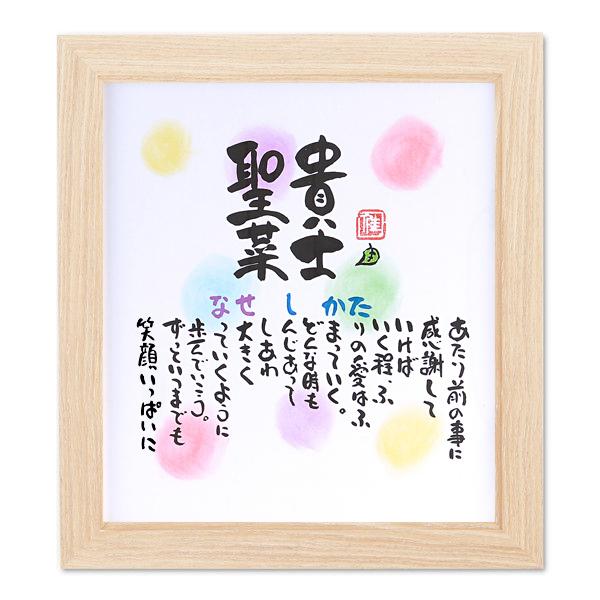 貴士
聖菜
あたり前の事に
感謝して
いけば
いく程、ふ
たりの愛はふ
かまっていく。
どんな時も
しんじあって
しあわ
せ大きく
なっていくように
歩んでいこう。
ずっといつまでも
笑顔いっぱいに